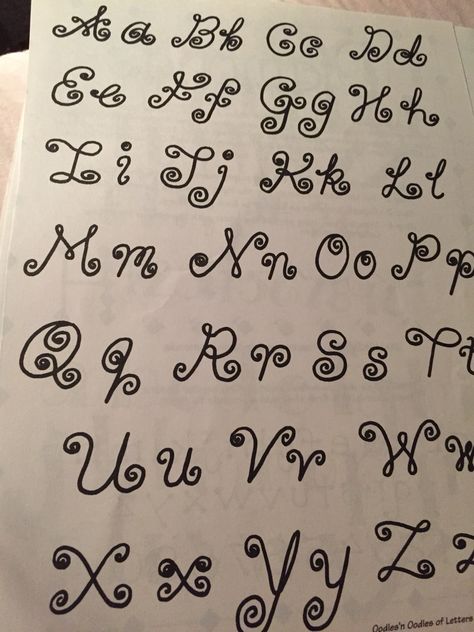 Aa Bb Cc Dd
Ee Ff Gg Hh
Ii Jj Kk Ll
Mm Nn Oo Pp
Qq Rr Ss Tt
Uu Vv Ww
Xx Yy Zz
Oodles'n Oodles of Letters